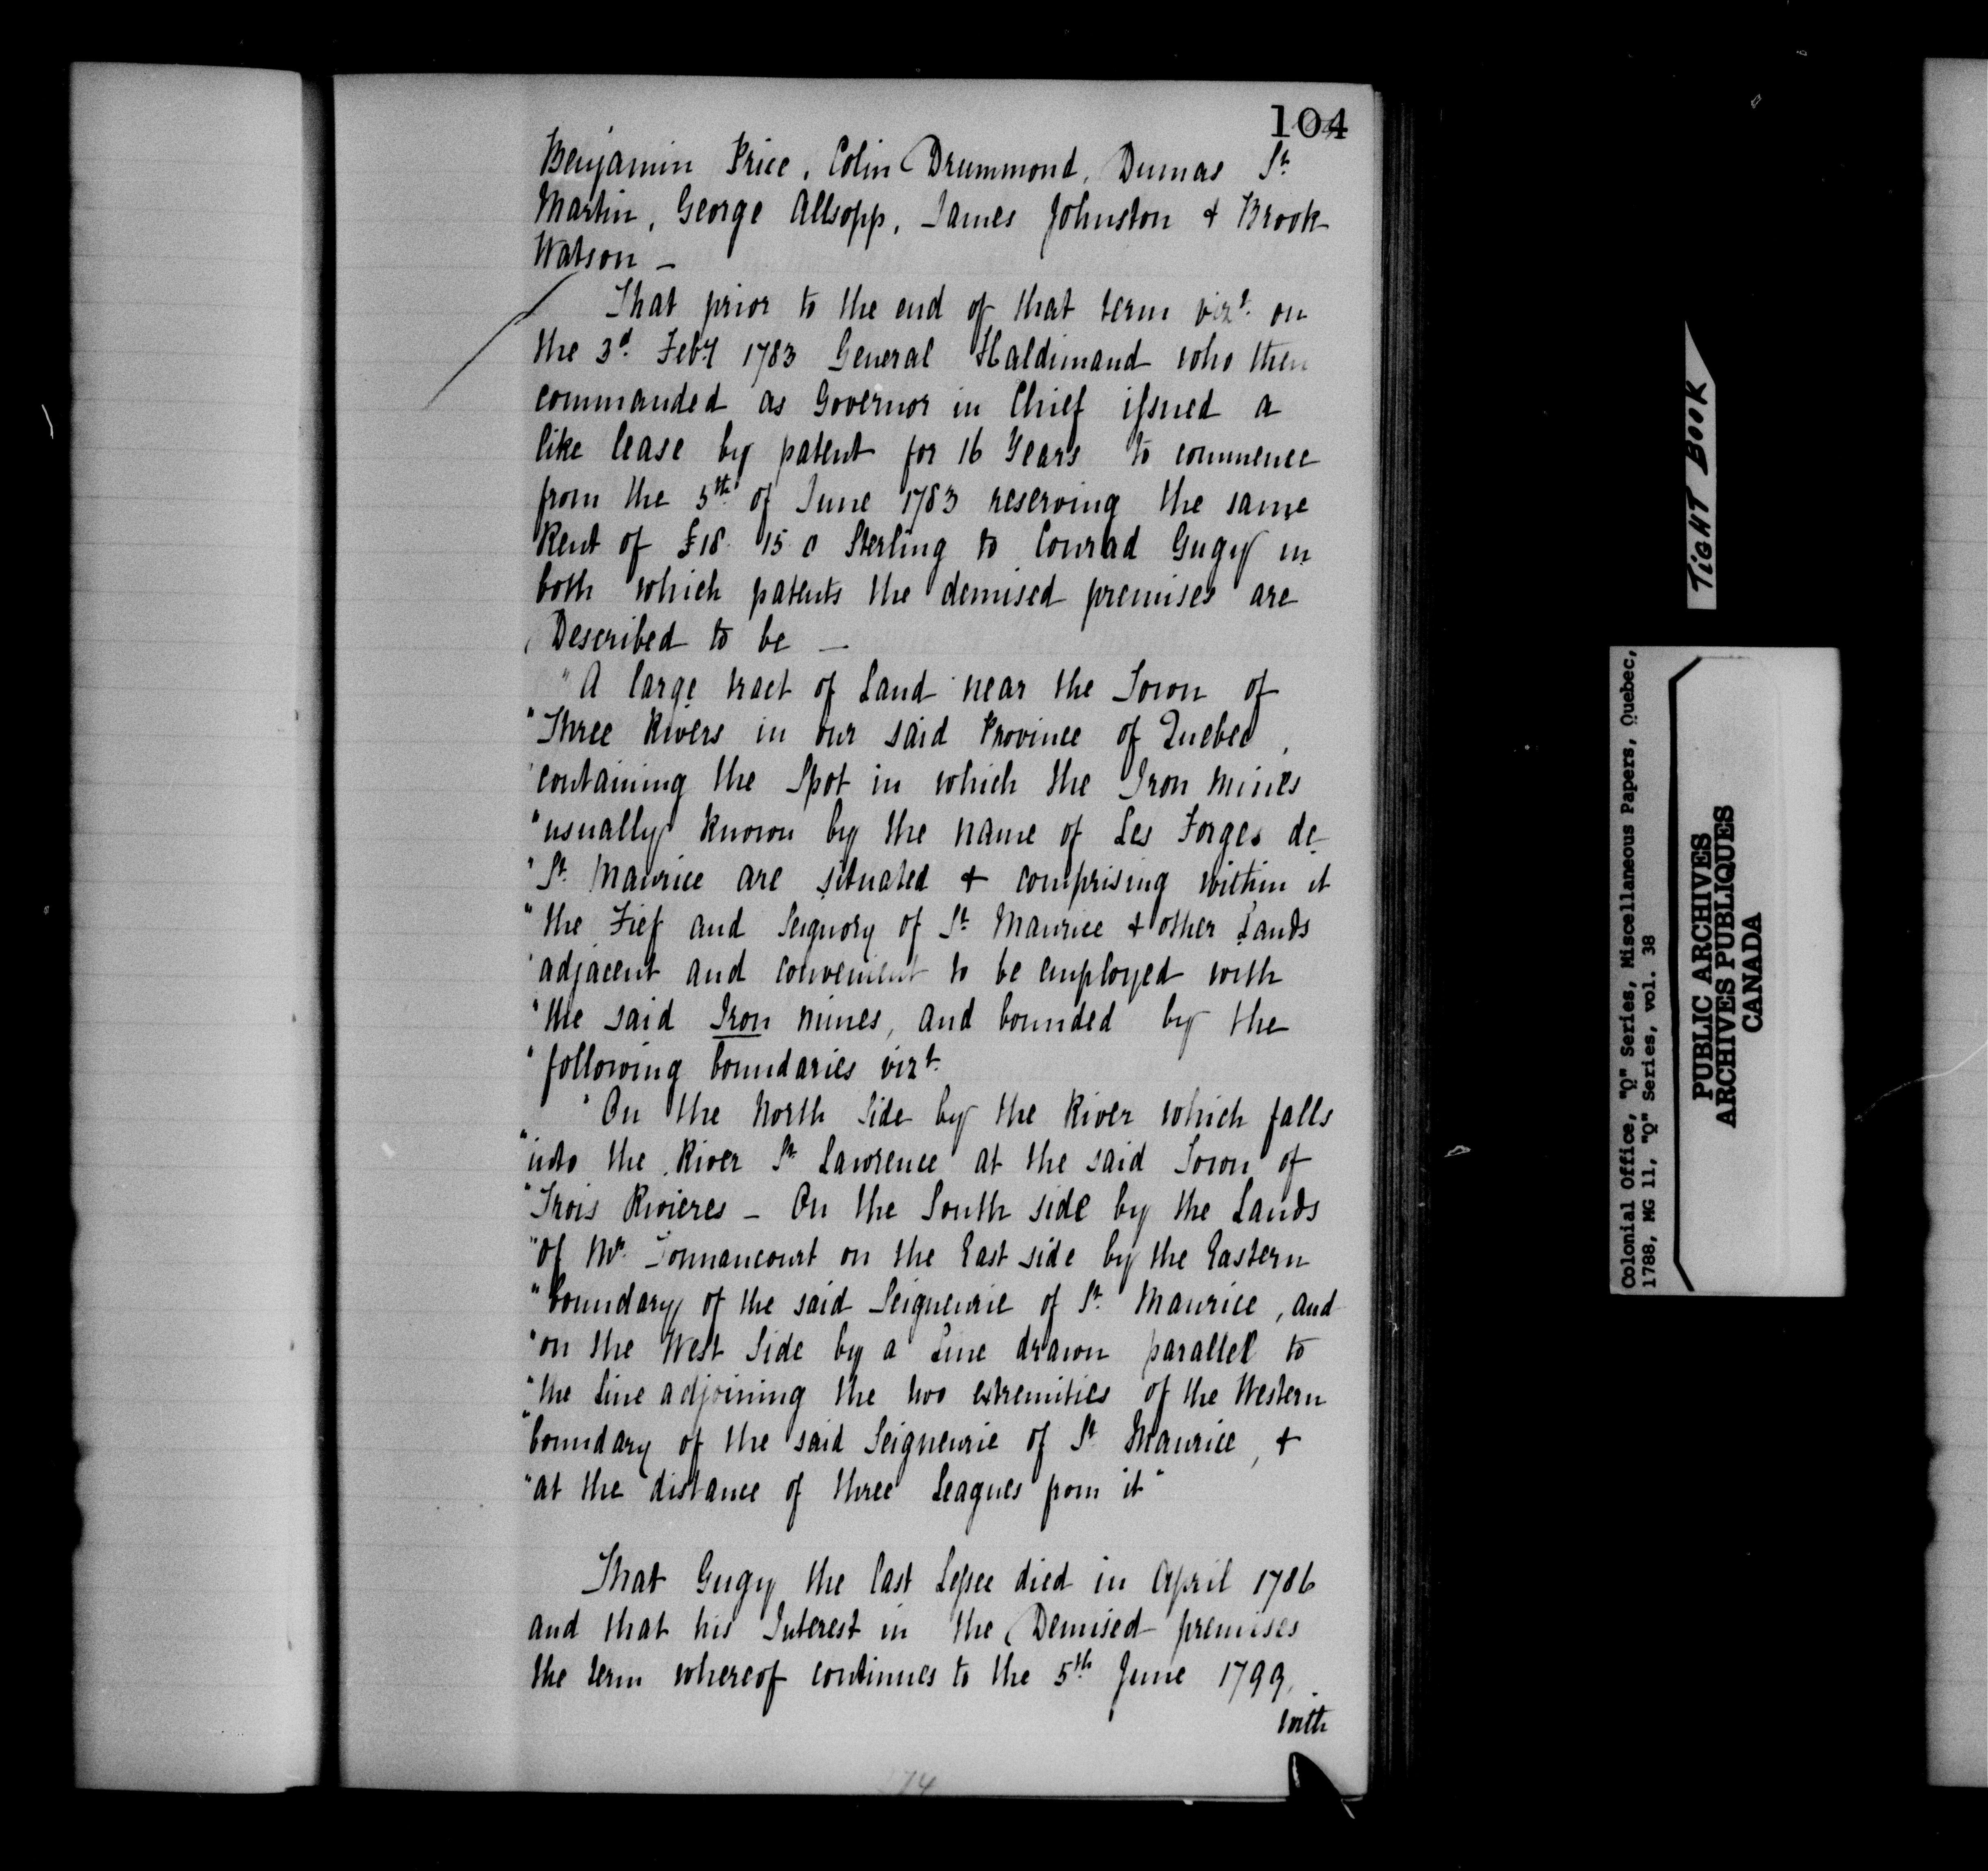 104
Benjamin Price, Colin Drummond, Dumas St.
Martin, George Allsopp, James Johnston & Brook
Watson —
That prior to the end of that term vizt. on
the 3d. Feby 1783 General Haldimand who then
commanded as Governor in Chief issued a
like lease by patent for 16 Years to commence
from the 5th of June 1783 reserving the same
Rent of £18 15 0 Sterling to Conrad Gugy in
both which patents the demised premises are
Described to be —
"A large tract of Land near the Town of
"Three Rivers in our said Province of Quebec,
"containing the Spot in which the Iron Mines
"usually known by the name of Les Forges de
"St. Maurice are situated & comprising within it
"the Fief and Seignory of St. Maurice & other Lands
"adjacent and convenient to be employed with
"the said Iron Mines, and bounded by the
"following boundaries vizt.
"On the North Side by the River which falls
"into the River St. Lawrence at the said Town of
"Trois Rivieres — On the South side by the Lands
"of Mr. Tonnancourt on the East side by the Eastern
"boundary of the said Seigneurie of St. Maurice, and
"on the West Side by a Line drawn parallel to
"the Line adjoining the two extremities of the Western
"boundary of the said Seigneurie of St. Maurice, &
"at the distance of three Leagues from it"
That Gugy the last Lessee died in April 1786
and that his Interest in the Demised premises
the term whereof continues to the 5th June 1799.
with
74
TIGHT BOOK
Colonial Office, "Q" Series, Miscellaneous Papers, Quebec,
1788, MG 11, "Q" Series, vol. 38
PUBLIC ARCHIVES
ARCHIVES PUBLIQUES
CANADA